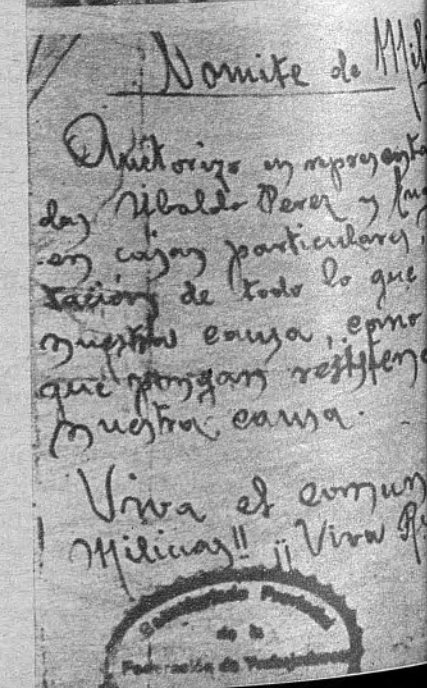 Nomite de Mil
Autorizo en representa
das Ubaldo Perez y
en casas particulares,
tación de todo lo que
nuestra causa, como
que pongan resisten
nuestra causa.
Viva el comun
Milicias!! ¡¡Viva Ru
Provincial
de la
Federación de Trabajadores